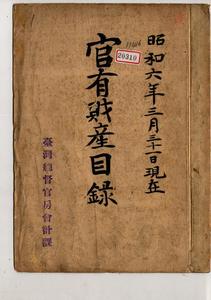 昭和六年三月三十一日現在
官有財産目録
20310
臺灣總督官房會計課